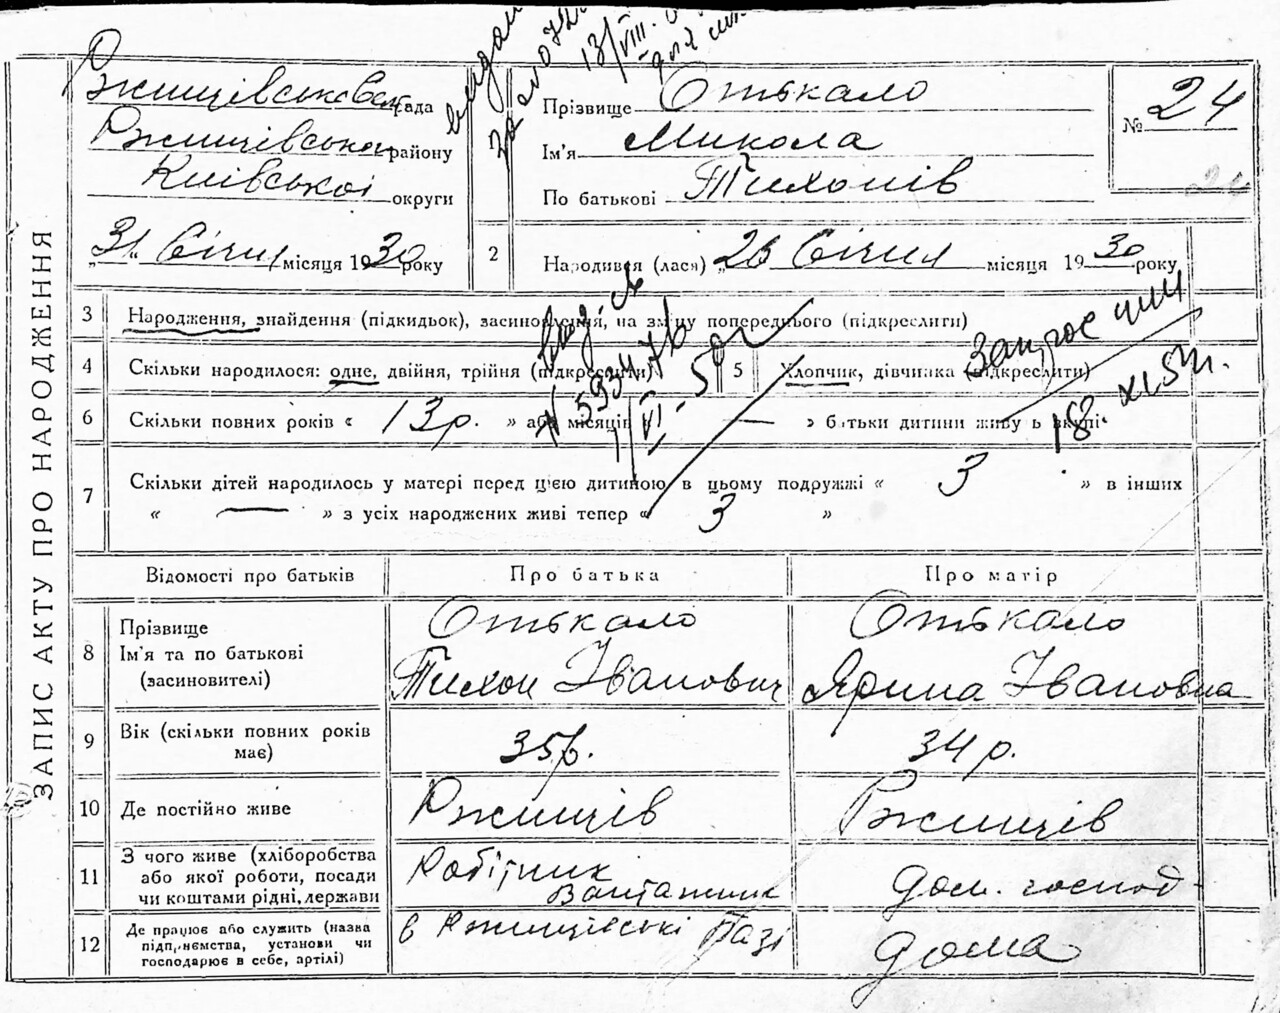 ЗАПИС АКТУ ПРО НАРОДЖЕННЯ
Ржищівська рада
Ржищівська району
Київської округи
„31“ Січня місяця 1930 року
Прізвище Отькало
Ім'я Микола
По батькові Тихонів
№ 24
24
2 Народився (лася) „26 Січня місяця 1930 року
3 Народження, знайдення (підкидьок), засиновлення, на зміну попереднього (підкреслити)
4 Скільки народилося: одне, двійня, трійня (підкреслити) 5 Хлопчик, дівчинка (підкреслити)
6 Скільки повних років « 13 р. » або місяців « — » батьки дитини живуть вкупі
7 Скільки дітей народилось у матері перед цією дитиною в цьому подружжі « 3 » в інших
« — » з усіх народжених живі тепер « 3 »
13/VIII.
593476
1/VI-50
18 XI.57.
Відомості про батьків Про батька Про матір
8 Прізвище
Ім'я та по батькові
(засиновителі)
Отькало
Тихон Іванович
Отькало
Ярина Івановна
9 Вік (скільки повних років має) 35 р. 34 р.
10 Де постійно живе Ржищів Ржищів
11 З чого живе (хліборобства
або якої роботи, посади
чи коштами рідні, держави
Робітник
Вантажник
дом. господ-
12 Де працює або служить (назва
підприємства, установи чи
господарює в себе, артілі)
в Ржищівські
дома